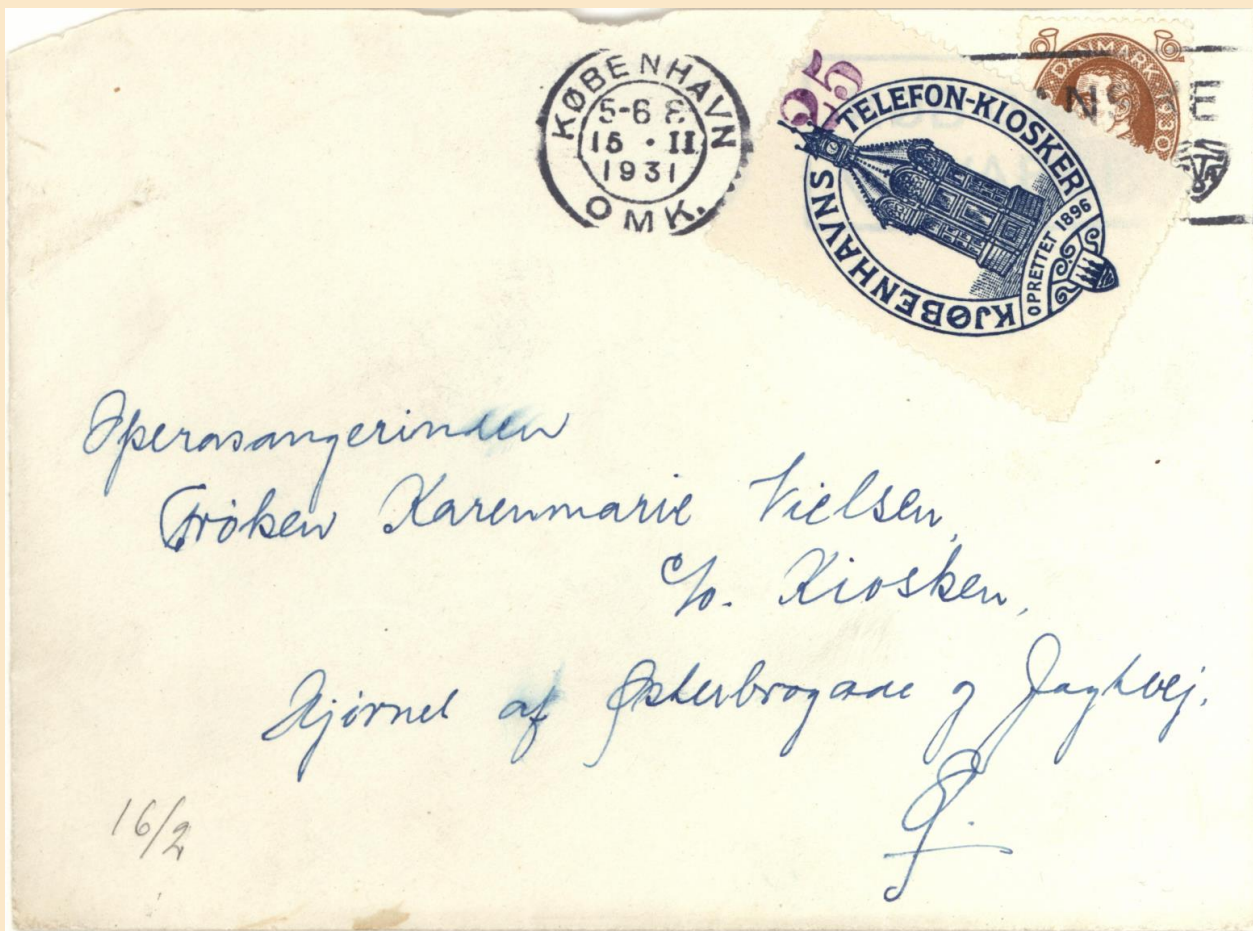 KØBENHAVN
5-6 E
15 · II
1931
OMK.
25
KJØBENHAVNS TELEFON-KIOSKER
OPRETTET 1896
DANMARK 1930
Operasangerinden
Frøken Karenmarie Nielsen,
c/o. Kiosken,
Hjørnet af Østerbrogade og Jagtvej.
Ø.
16/2